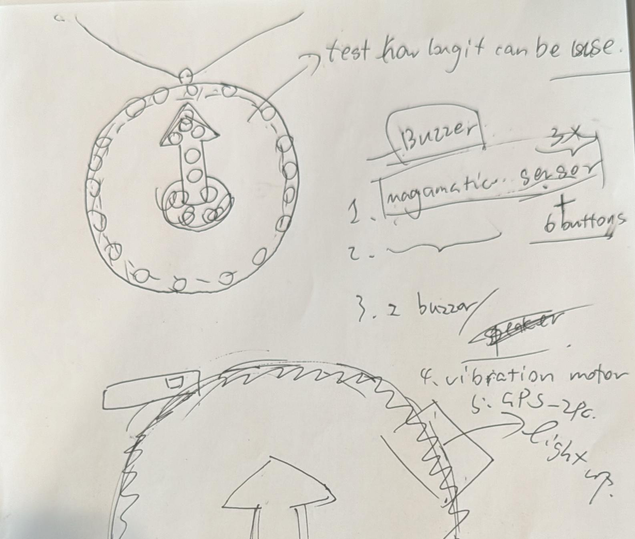 test how long it can be use.
Buzzer
3x
1. magamatic senser
+
6 buttons
2.
3. 2 buzzer/
speaker
4. vibration motor
5. GPS-2pc.
light
up.